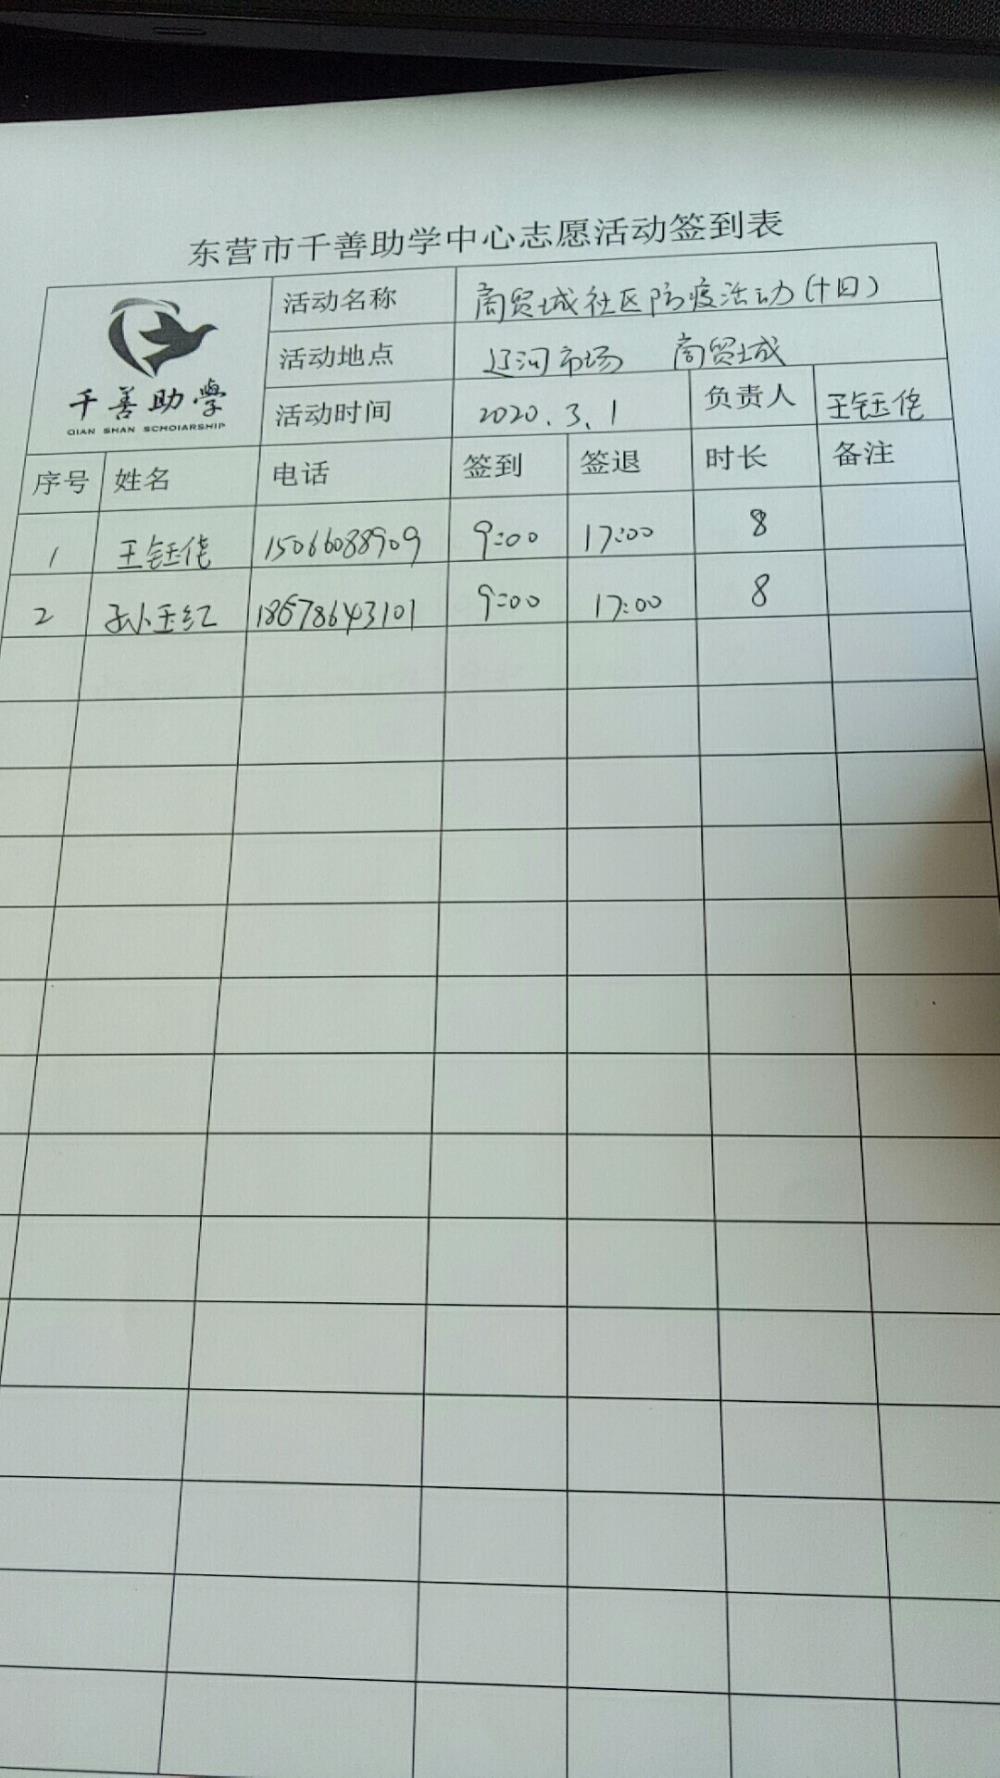 东营市千善助学中心志愿活动签到表
千善助學
QIAN SHAN SCHOIARSHIP
活动名称 商贸城社区防疫活动(十四)
活动地点 辽河市场 商贸城
活动时间 2020.3.1 负责人 王钰佬
序号 姓名 电话 签到 签退 时长 备注
1 王钰佬 15066088909 9:00 17:00 8
2 孙玉红 18678643101 9:00 17:00 8